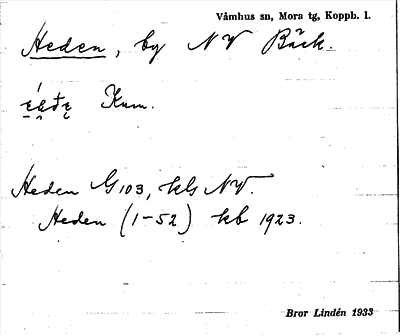 Våmhus sn, Mora tg, Koppb. l.
Heden, by N V Bäck.
Heden G103, kls NV.
Heden (1-52) kb 1923.
Bror Lindén 1933